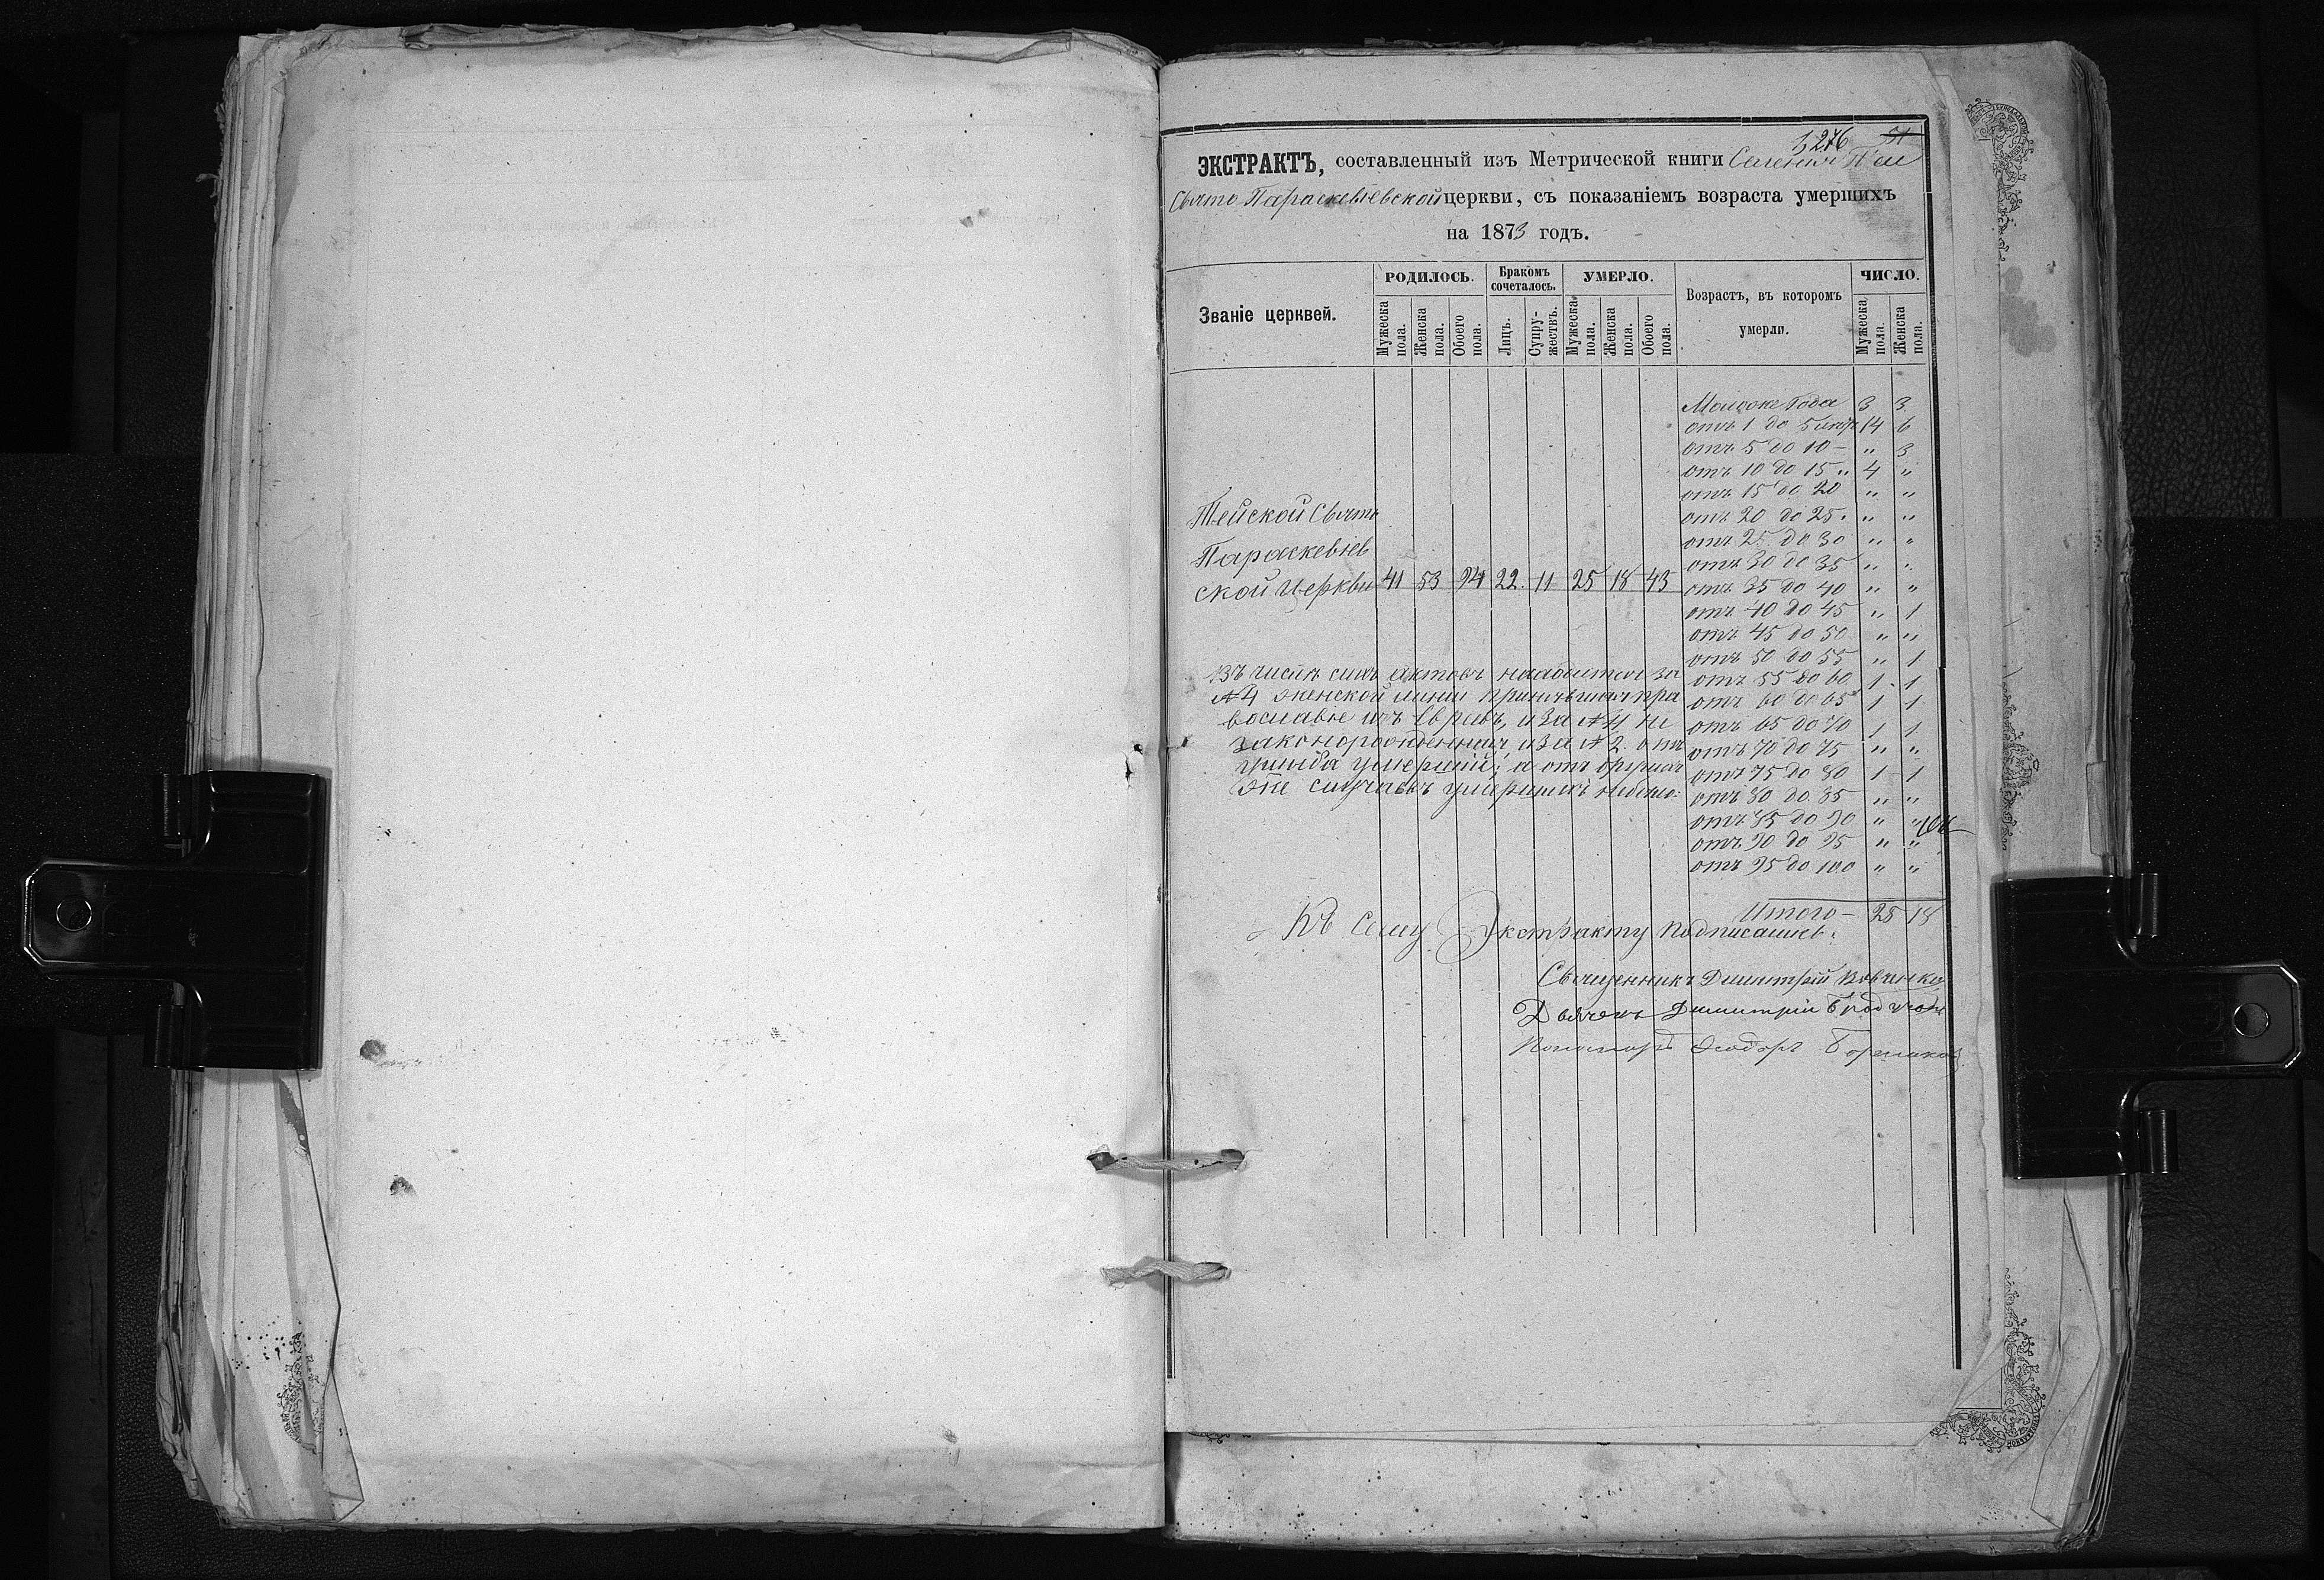 1,276 51
ЭКСТРАКТЪ, составленный изъ Метрической книги Селенія Теи
Свято Параскевіевской церкви, съ показаніемъ возраста умершихъ
на 1873 годъ.
Званіе церквей.
РОДИЛОСЬ.
Мужеска пола.
Женска пола.
Обоего пола.
Бракомъ сочеталось.
Лицъ.
Супружествъ.
УМЕРЛО.
Мужеска пола.
Женска пола.
Обоего пола.
Возрастъ, въ которомъ умерли.
ЧИСЛО.
Мужеска пола.
Женска пола.
Тейской Свято
Параскевіев
ской Церкви 41 53 94 22. 11 25 18 43
Моложе Года 3 3
отъ 1 до 5 лѣтъ 14 6
отъ 5 до 10 — „ 3
отъ 10 до 15 „ 4 „
отъ 15 до 20 „ „
отъ 20 до 25. „ „
отъ 25 до 30 „ „
отъ 30 до 35 „ „
отъ 35 до 40 „ „
отъ 40 до 45 „ 1
отъ 45 до 50 „ „
отъ 50 до 55 „ 1
отъ 55 до 60 1 1
отъ 60 до 65 1 1
отъ 65 до 70 1 1
отъ 70 до 75 „ „
отъ 75 до 80 1 1
отъ 80 до 85 „ „
отъ 85 до 90 „ „
отъ 90 до 95 „ „
отъ 95 до 100 „ „
Итого — 25 18
Въ числѣ сихъ актовъ находится за
№ 4 женской линіи принявшая пра
вославіе изъ Евреевъ, и за № 4 не
законорожденная, и за № 2. отъ
умершій; а отъ другихъ
же случаевъ умершихъ небыло.
Къ сему Экстракту подписались:
Священникъ Димитрій
Дьячекъ Димитрій
Пономарь Ѳеодоръ